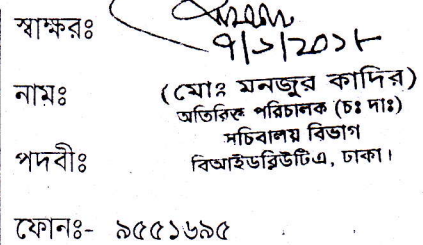 স্বাক্ষরঃ
৭/১/২০১৮
নামঃ (মোঃ মনজুর কাদির)
অতিরিক্ত পরিচালক (চঃ দাঃ)
সচিবালয় বিভাগ
পদবীঃ বিআইডব্লিউটিএ, ঢাকা।
ফোনঃ- ৯৫৫১৬৯৫